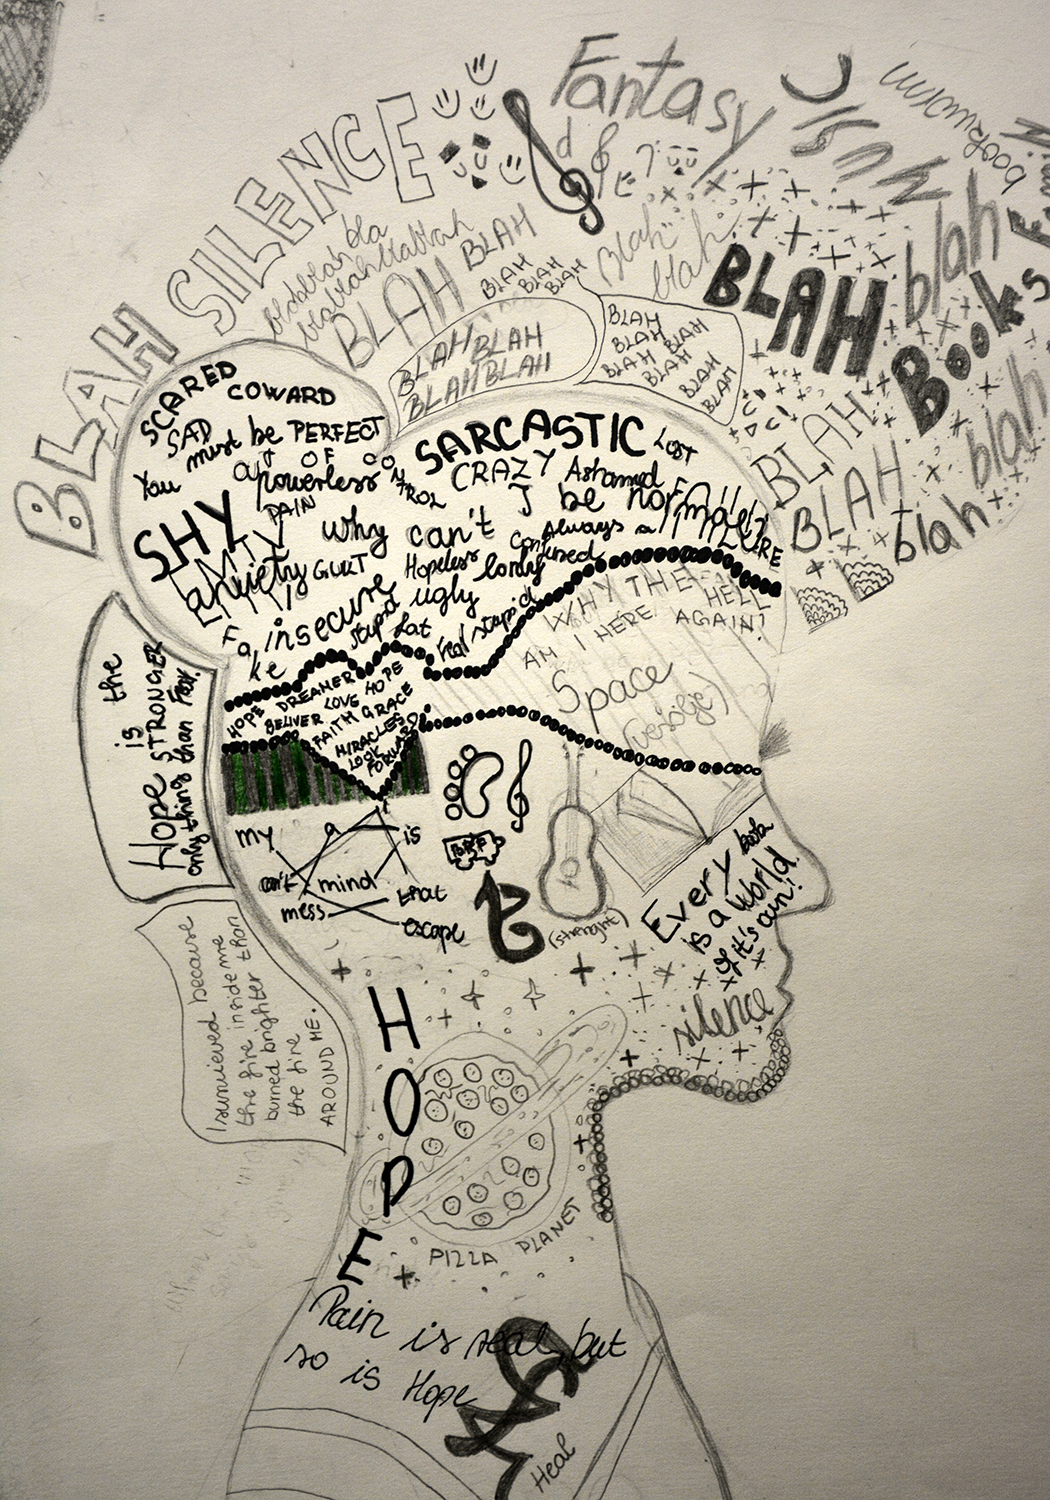 BLAH SILENCE
Fantasy
MUSIC
bookworm
blahblah bla
blahblahblahblah
BLAH BLAH
BLAH
BLAH
BLAH
BLAH BLAH
BLAH BLAH
BLAH
BLAH
BLAH BLAH
BLAH
BLAH
BLAH
Blah
blah
BLAH
blah
Books
BLAH
BLAH
blah
blah
SCARED
COWARD
SAD
must be PERFECT
You
OUT OF CONTROL
powerless
PAIN
SHY
EMPTY
anxiety
GUILT
insecure
Fake
SARCASTIC
LOST
CRAZY
Ashamed
why can't I be normal?
Always a FAILURE
Confused
Hopeless
lonely
ugly
stupid
fat
real stupid
WHY THE HELL
AM I HERE AGAIN?
Space
HOPE DREAMER
BELIVER LOVE HOPE
FAITH GRACE
MIRACLES
LOOK
FORWARD
Hope is the
STRONGER
only thing than Fear.
my a is
can't mind that
mess escape
BRF
(strenght)
Every book
is a world
of it's own!
silence
I survieved because
the fire inside me
burned brighter than
the fire
AROUND ME.
HOPE
PIZZA PLANET
Pain is real, but
so is Hope
Heal